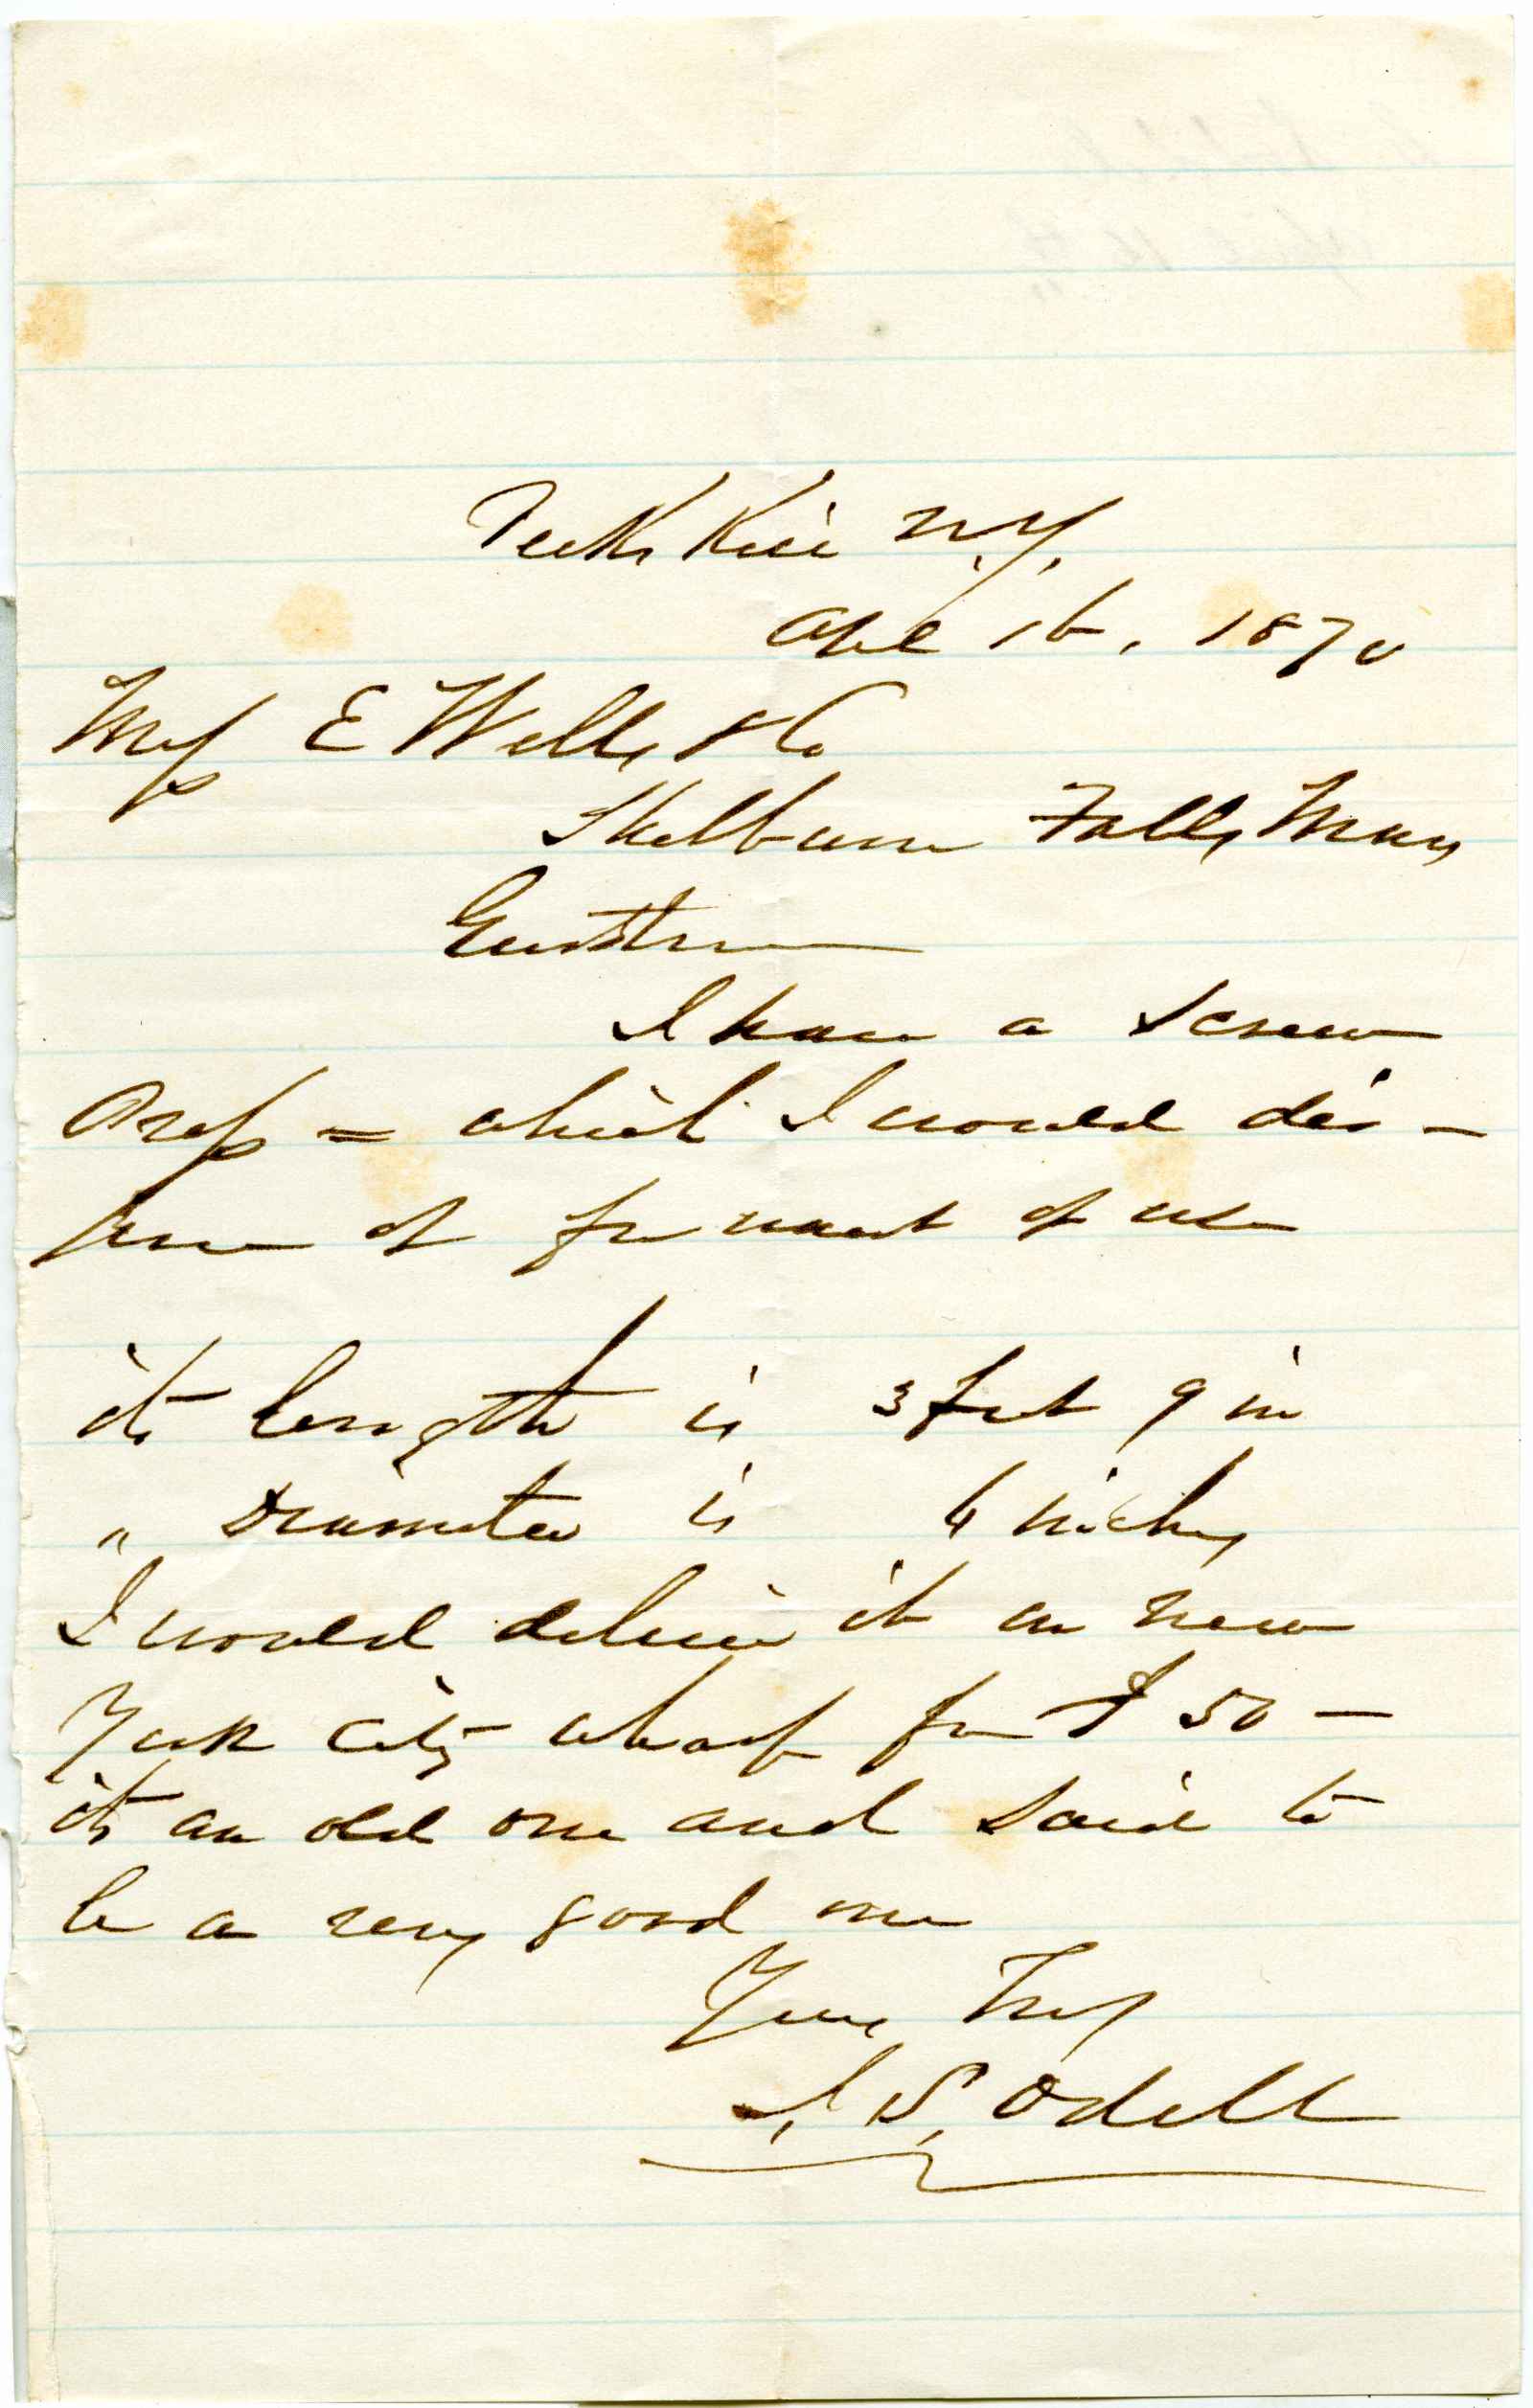 Peekskill N.Y.
Apl 16, 1870
Mess E Wells & Co
Shelburn Falls Mass
Gentlemen
I have a Screw
Press = which I would dis-
pose of for want of use
its length is 3 feet 9 in
" Diameter is 6 inches
I would deliver it on New
York City wharf for $50 -
its an old one and said to
be a very good one
Yours Truly
I. S. Odell